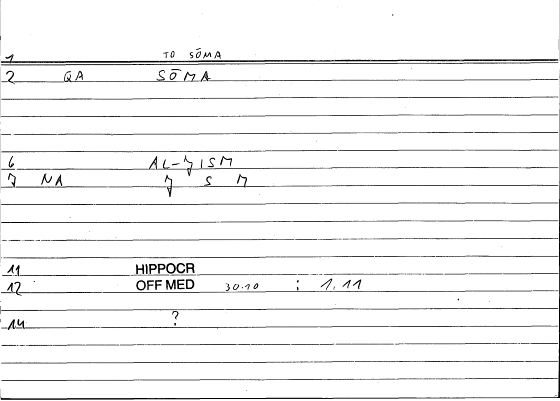 1 TO SŌMA
2 QA SŌMA
6 AL-ǦISM
7 NA Ǧ S M
11 HIPPOCR
12 OFF MED 30.10 : 1.11
14 ?